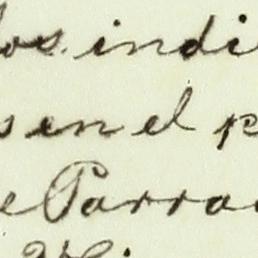 los indi
s en el p
e Parra